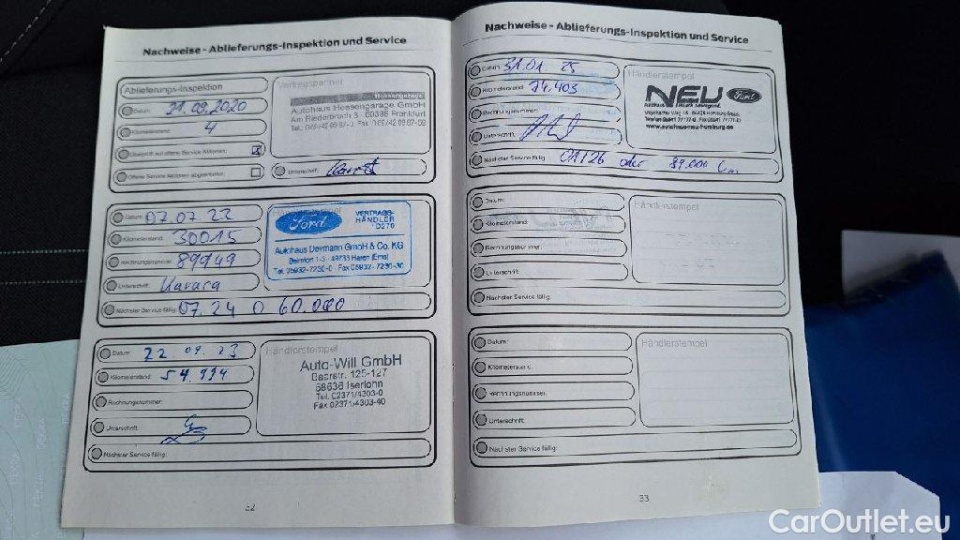 Nachweise - Ablieferungs-Inspektion und Service
Ablieferungs-Inspektion
Datum: 21.09.2020
Kilometerstand: 4
Überprüft auf offene Service Aktionen: X
Offene Service Aktionen abgearbeitet:
Vertragsstempel
Hessengarage
Autohaus Hessengarage GmbH
Am Riederbruch 3 · 60386 Frankfurt
Unterschrift:
Datum: 07.07.22
Kilometerstand: 30015
Rechnungsnummer: 89949
Unterschrift:
Nächster Service fällig: 07.24 o 60.000
Ford
VERTRAGS-
HÄNDLER
Autohaus Deymann GmbH & Co. KG
49733 Haren (Ems)
Tel. 05932-7230-0 · Fax 05932-7230-30
Datum: 22 09. 23
Kilometerstand: 54.994
Rechnungsnummer:
Unterschrift:
Nächster Service fällig:
Händlerstempel
Auto-Will GmbH
Baarstr. 125-127
58636 Iserlohn
Tel. 02371/4303-0
Fax 02371/4303-40
32
Nachweise - Ablieferungs-Inspektion und Service
Datum: 31.01 25
Kilometerstand: 74.403
Rechnungsnummer:
Unterschrift:
Nächster Service fällig: 01/26 oder 89.000 km
Händlerstempel
NEU Ford
www.autohausneu-homburg.de
Datum:
Kilometerstand:
Rechnungsnummer:
Unterschrift:
Nächster Service fällig:
Händlerstempel
Datum:
Kilometerstand:
Rechnungsnummer:
Unterschrift:
Nächster Service fällig:
Händlerstempel
33
CarOutlet.eu